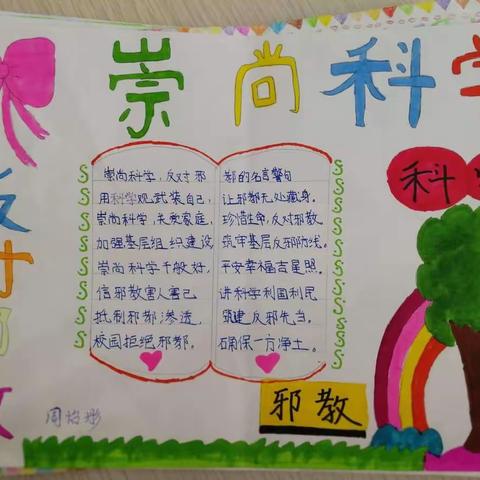 崇尚科学
反对邪教
科学
崇尚科学,反对邪 教的名言警句
用科学观武装自己, 让邪教无处藏身。
崇尚科学,关爱家庭, 珍惜生命,反对邪教
加强基层组织建设 筑牢基层反邪防线。
崇尚科学千般好, 平安幸福吉星照。
信邪教害人害己 讲科学利国利民
抵制邪教渗透, 筑建反邪先当。
校园拒绝邪教。 确保一方净土。
邪教